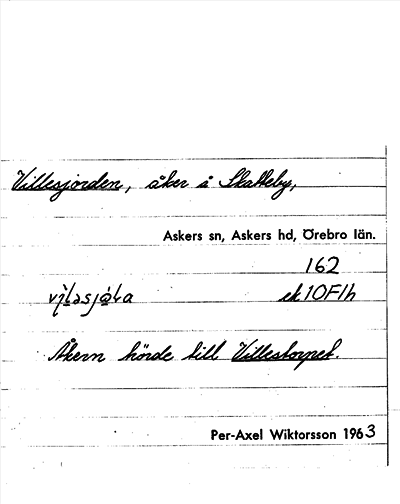 Villesjorden, åker å Skatteby,
Askers sn, Askers hd, Örebro län.
162
ek 10F1h
Åkern hörde till Villestorpet.
Per-Axel Wiktorsson 1963